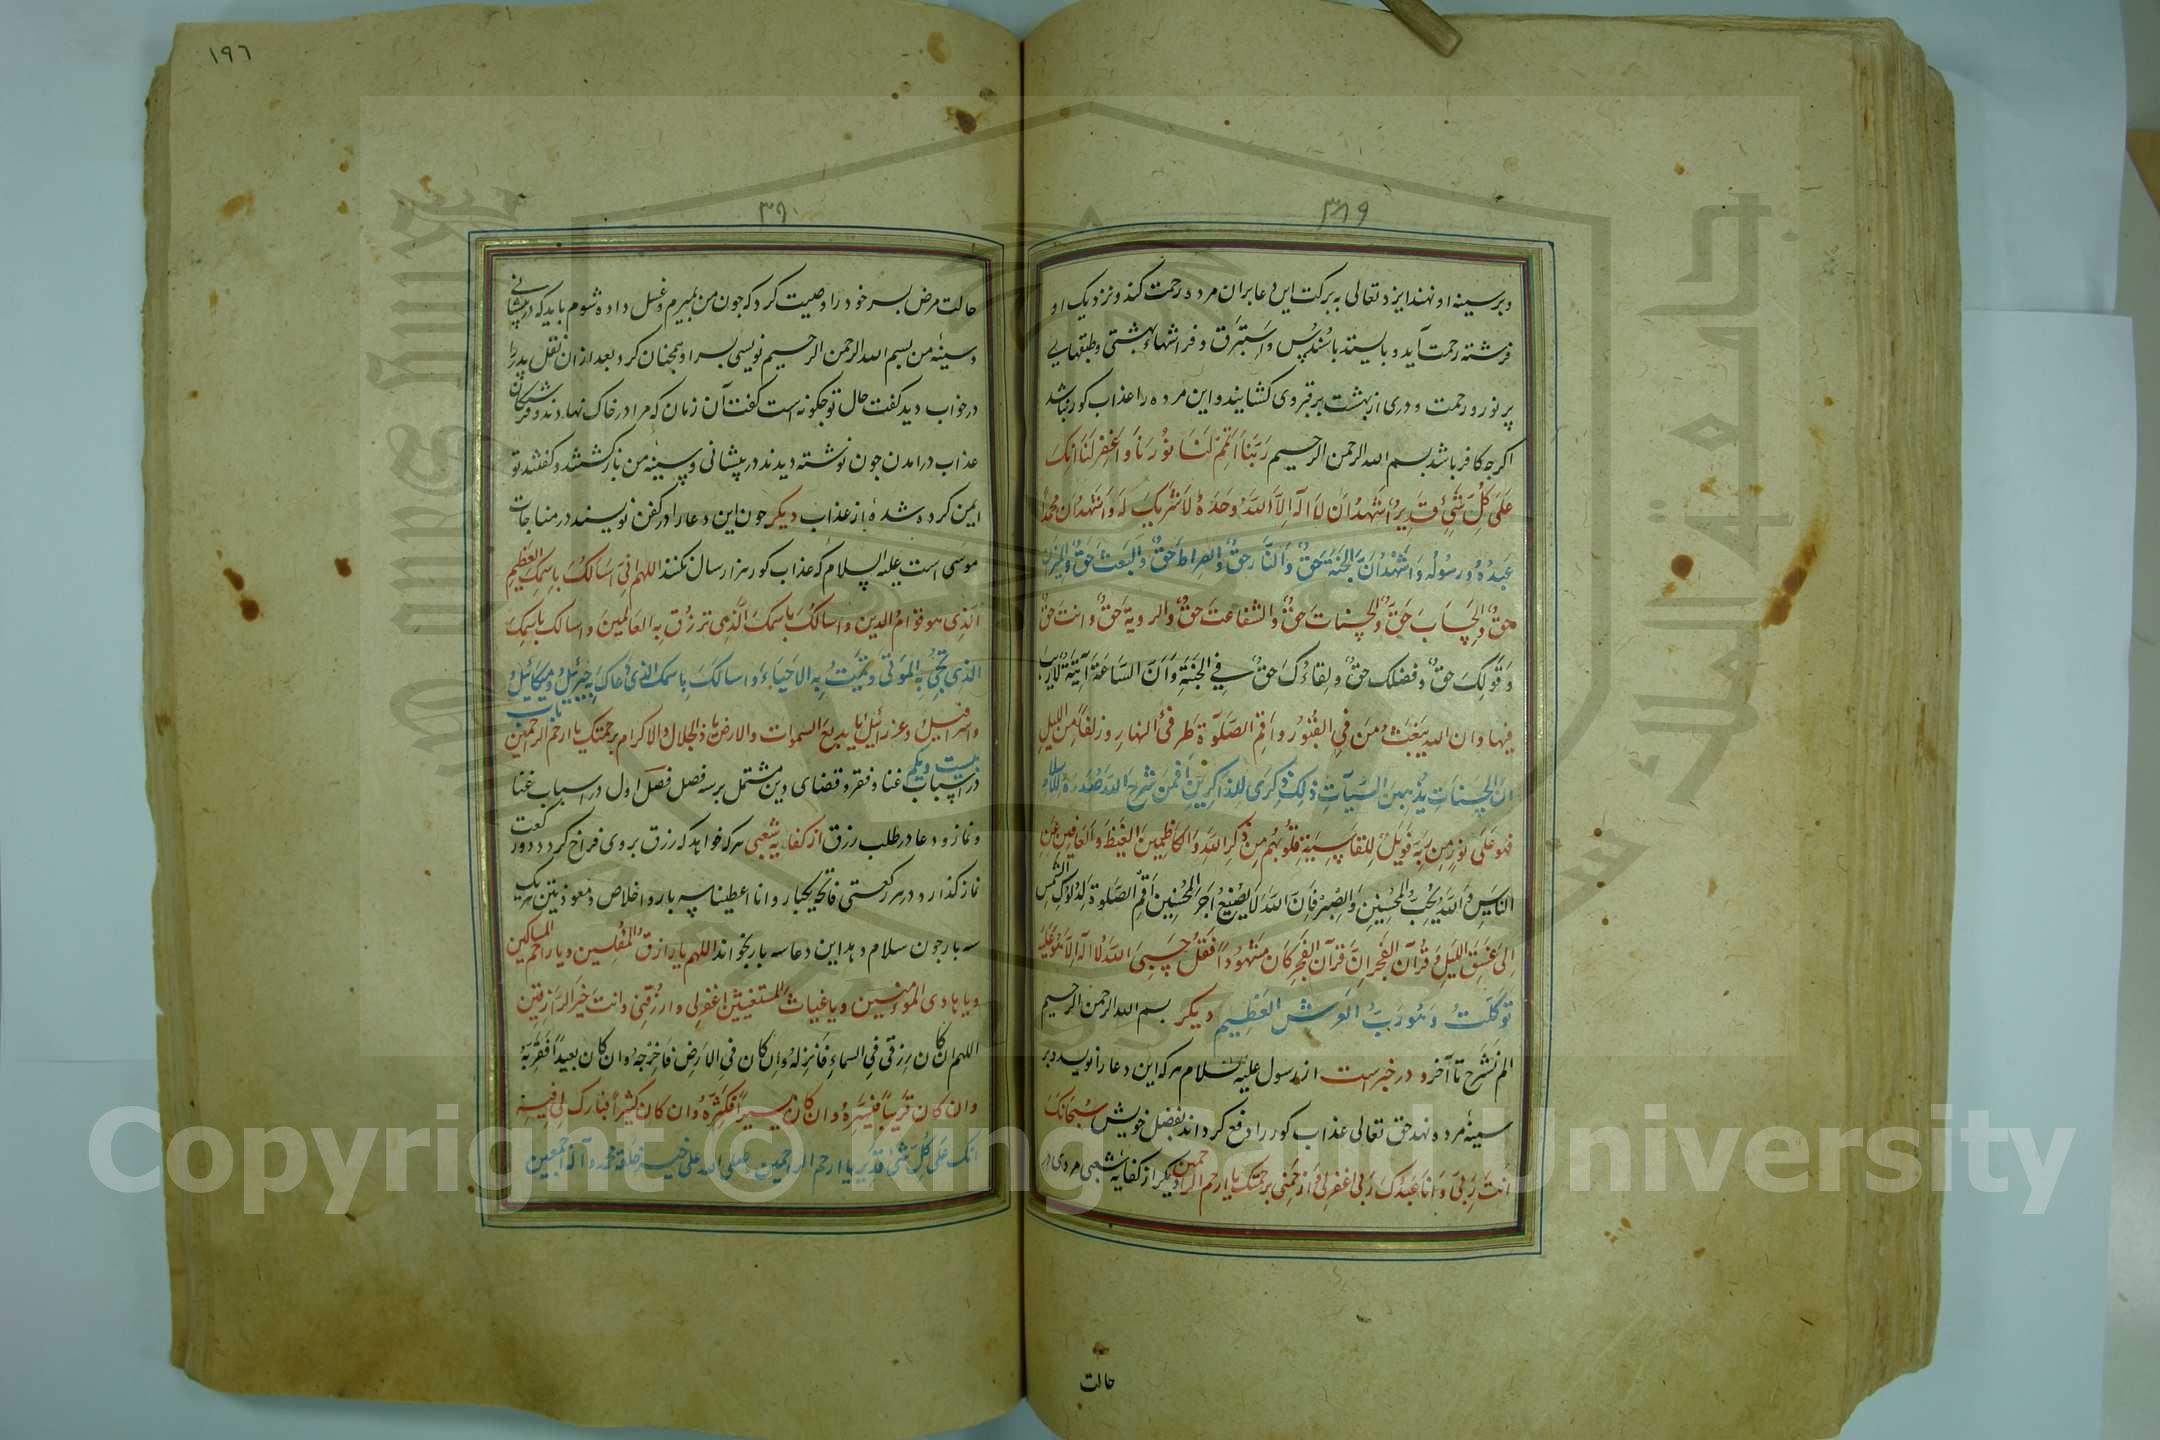 ٣٨٩
و بر سینه او نهند ایزد تعالی به برکت این دعا بران مرده رحمت کند و نزدیک او
فرشته رحمت آید و بایستد با سندس و استبرق و فراشهاء بهشتی و طبقهایی
پر نور و رحمت و دری از بهشت بر قبر وی کشایند و این مرده را عذاب کور نباشد
اکرچه کافر باشد بسم الله الرحمن الرحیم رَبَّنَا اَتْمِمْ لَنَا نُورَنَا وَاغْفِرْ لَنَا اِنَّکَ
عَلَی کُلِّ شَیْءٍ قَدِیرٌ اَشْهَدُ اَنْ لَا اِلَهَ اِلَّا اللهُ وَحْدَهُ لَا شَرِیکَ لَهُ وَاَشْهَدُ اَنَّ مُحَمَّدًا
عَبْدُهُ وَرَسُولُهُ وَاَشْهَدُ اَنَّ الْجَنَّةَ حَقٌّ وَالنَّارَ حَقٌّ وَالصِّرَاطَ حَقٌّ وَالْبَعْثَ حَقٌّ وَالْمِیزَانَ
حَقٌّ وَالْحِسَابَ حَقٌّ وَالْحَسَنَاتَ حَقٌّ وَالشَّفَاعَتَ حَقٌّ وَالرویةَ حَقٌّ وَانتَ حَقٌّ
وَقَوْلَکَ حَقٌّ وَفضلک حَقٌّ وَلِقَاءُکَ حَقٌّ فِی الْجَنَّةِ وَاَنَّ السَّاعَةَ آتِیَةٌ لَارَیْبَ
فِیهَا وَاَنَّ اللهَ یَبْعَثُ مَنْ فِی الْقُبُورِ وَاَقِمِ الصَّلَوةَ طَرَفَیِ النَّهَارِ وَزُلَفًا مِنَ اللَّیْلِ
اِنَّ الْحَسَنَاتِ یُذْهِبْنَ السَّیِّآتِ ذَلِکَ ذِکْرَی لِلذَّاکِرِینَ اَفَمَنْ شَرَحَ اللهُ صَدْرَهُ لِلْاِسْلَامِ
فَهُوَ عَلَی نُورٍ مِنْ رَبِّهِ فَوَیْلٌ لِلْقَاسِیَةِ قُلُوبُهُمْ مِنْ ذِکْرِ اللهِ وَالْکَاظِمِینَ الْغَیْظَ وَالْعَافِینَ عَنِ
النَّاسِ وَاللهُ یُحِبُّ الْمُحْسِنِینَ وَاصْبِرْ فَاِنَّ اللهَ لَا یُضِیعُ اَجْرَ الْمُحْسِنِینَ اَقِمِ الصَّلَوةَ لِدُلُوکِ الشَّمْسِ
اِلَی غَسَقِ اللَّیْلِ وَقُرْآنَ الْفَجْرِ اِنَّ قُرْآنَ الْفَجْرِ کَانَ مَشْهُودًا فَقُلْ حَسْبِیَ اللهُ لَا اِلَهَ اِلَّا هُوَ عَلَیْهِ
تَوَکَّلْتُ وَهُوَ رَبُّ الْعَرْشِ الْعَظِیمِ دیکر بسم الله الرحمن الرحیم
الم نشرح تا آخر و در خبر است از رسول علیه السلام هر که این دعا را نویسد و بر
سینهٔ مرده نهد حق تعالی عذاب کور را دفع کرداند بفضل خویش سُبْحَانَکَ
اَنْتَ رَبِّی وَاَنَا عَبْدُکَ رَبِّی اغْفِرْلِی وَارْحَمْنِی بِرَحْمَتِکَ یَا ارحم الراحمین دیکر از کفایهٔ شعبی مردی در
حالت
١٩٦
٣٩٠
حالت مرض پسر خود را وصیت کرد که چون من بمیرم و غسل داده شوم باید که در پیشانی
و سینهٔ من بسم الله الرحمن الرحیم نویسی پسر او همچنان کرد بعد از ان نقل پدر را
در خواب دید کفت حال تو چکونه است کفت آن زمان که مرا در خاک نهادند و فرشتکان
عذاب در امدن چون نوشته دیدند در پیشانی و سینهٔ من باز کشتند و کفتند تو
ایمن کرده شدهٔ از عذاب دیکر چون این دعا را در کفن نویسند در مناجات
موسی است علیه السلام که عذاب کور هزار سال نکنند اللهم اِنِّی اَسْاَلُکَ بِاسْمِکَ الْعَظِیمِ
الَّذِی هو قوام الدین وَاسالُکَ بِاسمکَ الَّذِی ترزُق بِهِ العَالَمِینَ وَاسالک بِاسْمِکَ
الذی تُحْیِی بِهِ الْمَوْتَی وَتُمِیتُ بِهِ الاَحیَاءَ وَاسالکَ بِاسمک الذی دعَاکَ بِهِ جبرئیلُ ومیکائیلُ
واسرافیلُ وعزرائیل یا بدیع السموات والارض یا ذالجلال والاکرام برحمتک یا ارحم الراحمین باب
بیست و یکم در اسباب غنا و فقر و قضای دین مشتمل بر سه فصل فصل اول در اسباب غنا
و نماز و دعا در طلب رزق از کفایه شعبی هر که خواهد که رزق بر وی فراخ کردد دو رکعت
نماز کذارد در هر رکعتی فاتحه یکبار و انا اعطینا سه بار و اخلاص و معوذتین هر یک
سه بار چون سلام دهد این دعا سه بار بخواند اللهم یا رازق المقلین ویا راحم المساکین
ویا هادی المؤمنین ویا غیاث المستغیثین اغفرلی وارزقنی وانت خیر الرازقین
اللهم ان کان رزقی فی السماءِ فَاَنْزِلْهُ وان کان فی الارض فَاَخْرِجْهُ وان کان بعیدًا فَقَرِّبْهُ
وان کان قریبًا فیَسِّرْهُ وان کان یسیرًا فَکَثِّرْهُ وان کان کثیرًا فبَارِک لِی فِیهِ
انک عَلَی کُلِّ شَیْءٍ قدیر یا ارحم الراحمین وصلی الله علی خیر خلقه محمد وآله اجمعین
Copyright © King Saud University
جامعة الملك سعود